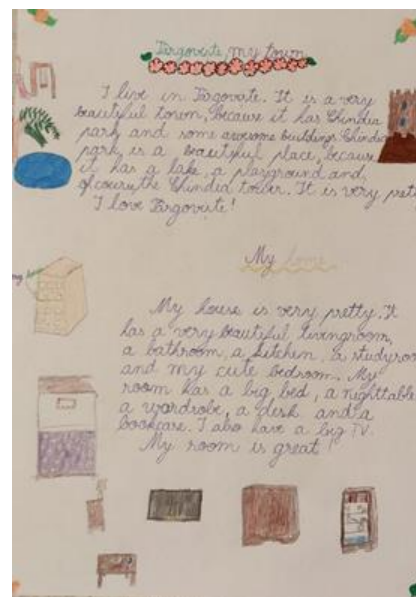 Târgoviște, my town
I live in Târgoviște. It is a very
beautyful town, because it has Chindia
park and some awesome buildings. Chindia
park is a beautyful place, because
it has a lake, a playground and,
of course, the Chindia tower. It is very pretty
I love Târgoviște!
My home
My house is very pretty. It
has a very beautyful livingroom,
a bathroom, a kitchen, a studyroom
and my cute bedroom. My
room has a big bed, a nighttable
a wardrobe, a desk and a
bookcase. I also have a big TV.
My room is great!